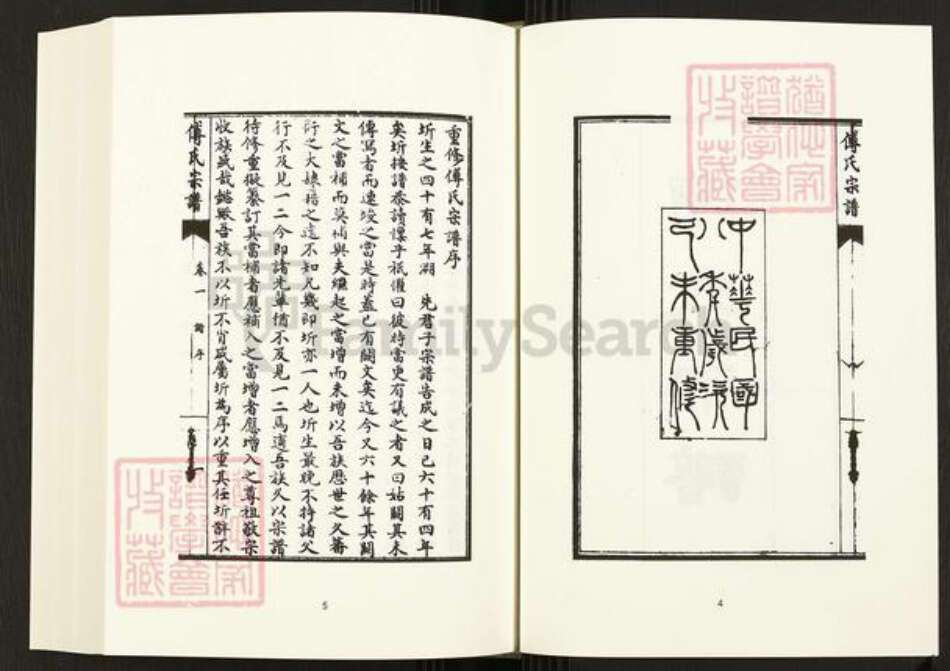 傅氏宗譜
中華民國
重修
4
重修傅氏宗譜序
圻生之四十有七年溯 先君子宗譜告成之日已六十有四年
矣圻接譜恭讀懍乎祗懼曰彼時當更有議之者又曰姑闕其未
傳寫者而速竣之當是時蓋已有闕文矣迄今又六十餘年其闕
文之當補而莫補與夫繼起之當增而未增以吾族歷世之久蕃
衍之大嫌籍之遠不知凡幾即圻亦一人也圻生最晚不特諸父
行不及見一二今即諸先輩情不及見一二焉適吾族久以宗譜
待修重擬纂訂其當補者應補入之當增者應增入之尊祖敬宗
收族盛哉懿歟吾族不以圻不肖咸屬圻為序以重其任圻辭不
傅氏宗譜
卷一
譜序
5
譜學會
收藏
FamilySearch